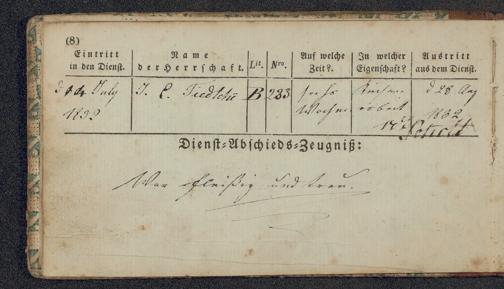 (8)
Eintritt in den Dienst. Name der Herrschaft. Lit. Nro. Auf welche Zeit?. In welcher Eigenschaft? Austritt aus dem Dienst.
July J. C. B 233 sechs d 28 Aug
Wochen arbeit 1832
Dienst-Abschieds-Zeugniß:
War fleißig und treu.